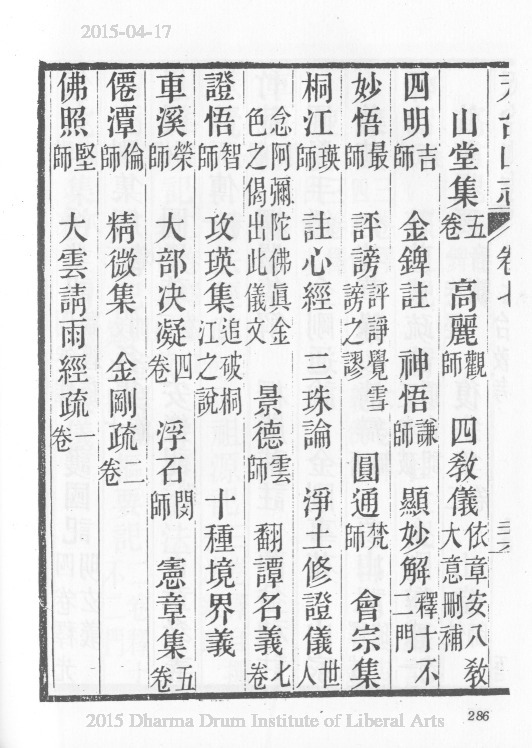 2015-04-17
卷七
山堂集五卷 高麗觀師 四教儀依章安八教大意刪補
四明吉師 金錍註 神悟謙師 顯妙解釋十不二門
妙悟最師 評謗評諍覺雪謗之謬 圓通梵師 會宗集
桐江瑛師 註心經 三珠論 淨土修證儀世人
念阿彌陀佛眞金色之偈出此儀文 景德雲師 翻譚名義七卷
證悟智師 攻瑛集追破桐江之說 十種境界義
車溪榮師 大部决凝四卷 浮石閔師 憲章集五卷
僊潭倫師 精微集 金剛疏二卷
佛照堅師 大雲請雨經疏一卷
286
2015 Dharma Drum Institute of Liberal Arts